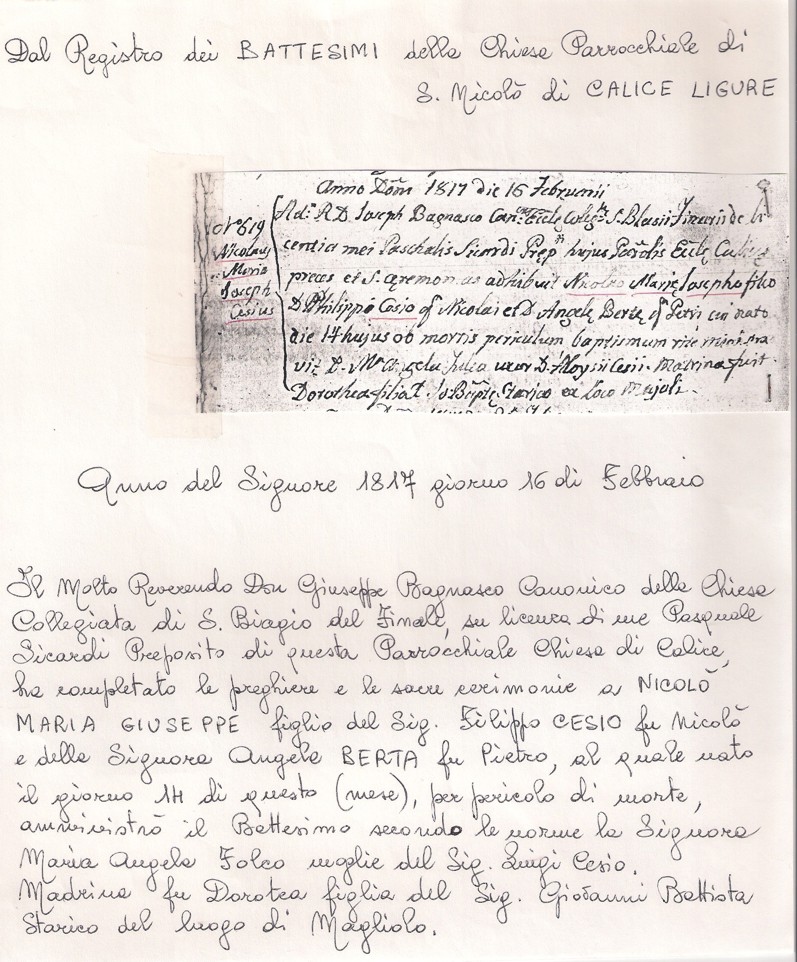 Dal Registro dei BATTESIMI della Chiesa Parrocchiale di
S. Nicolò di CALICE LIGURE
Anno Dom 1817 die 16 Februarii
N° 619
Nicolaus
Maria
Joseph
Cesius
Adm: R.D. Joseph Bagnasco Can: Eccle S. Blasii Finarii de li
centia mei Paschalis Sicardi Prep hujus Parolis Eccle
preces et S. ceremonias adhibuit Nicolao Marie Josepho filio
D. Philippo Cesio qm Nicolai et D Angele Berte qm Petri cui nato
die 14 hujus ob mortis periculum baptismum rite ministra
vit D. Ma Angela uxor D. Aloysii Cesii. Matrina fuit
Dorothea filia D. Jo Bapte Starico ex loco Majoli.
Anno del Signore 1817 giorno 16 di Febbraio
Il Molto Reverendo Don Giuseppe Bagnasco Canonico della Chiesa
Collegiata di S. Biagio del Finale, su licenza di me Pasquale
Sicardi Preposito di questa Parrocchiale Chiesa di Calice,
ha completato le preghiere e le sacre cerimonie a NICOLÒ
MARIA GIUSEPPE figlio del Sig. Filippo CESIO fu Nicolò
e della Signora Angela BERTA fu Pietro, al quale nato
il giorno 14 di questo (mese), per pericolo di morte,
amministrò il Battesimo secondo le norme la Signora
Maria Angela Folco moglie del Sig. Luigi Cesio.
Madrina fu Dorotea figlia del Sig. Giovanni Battista
Starico del luogo di Magliolo.